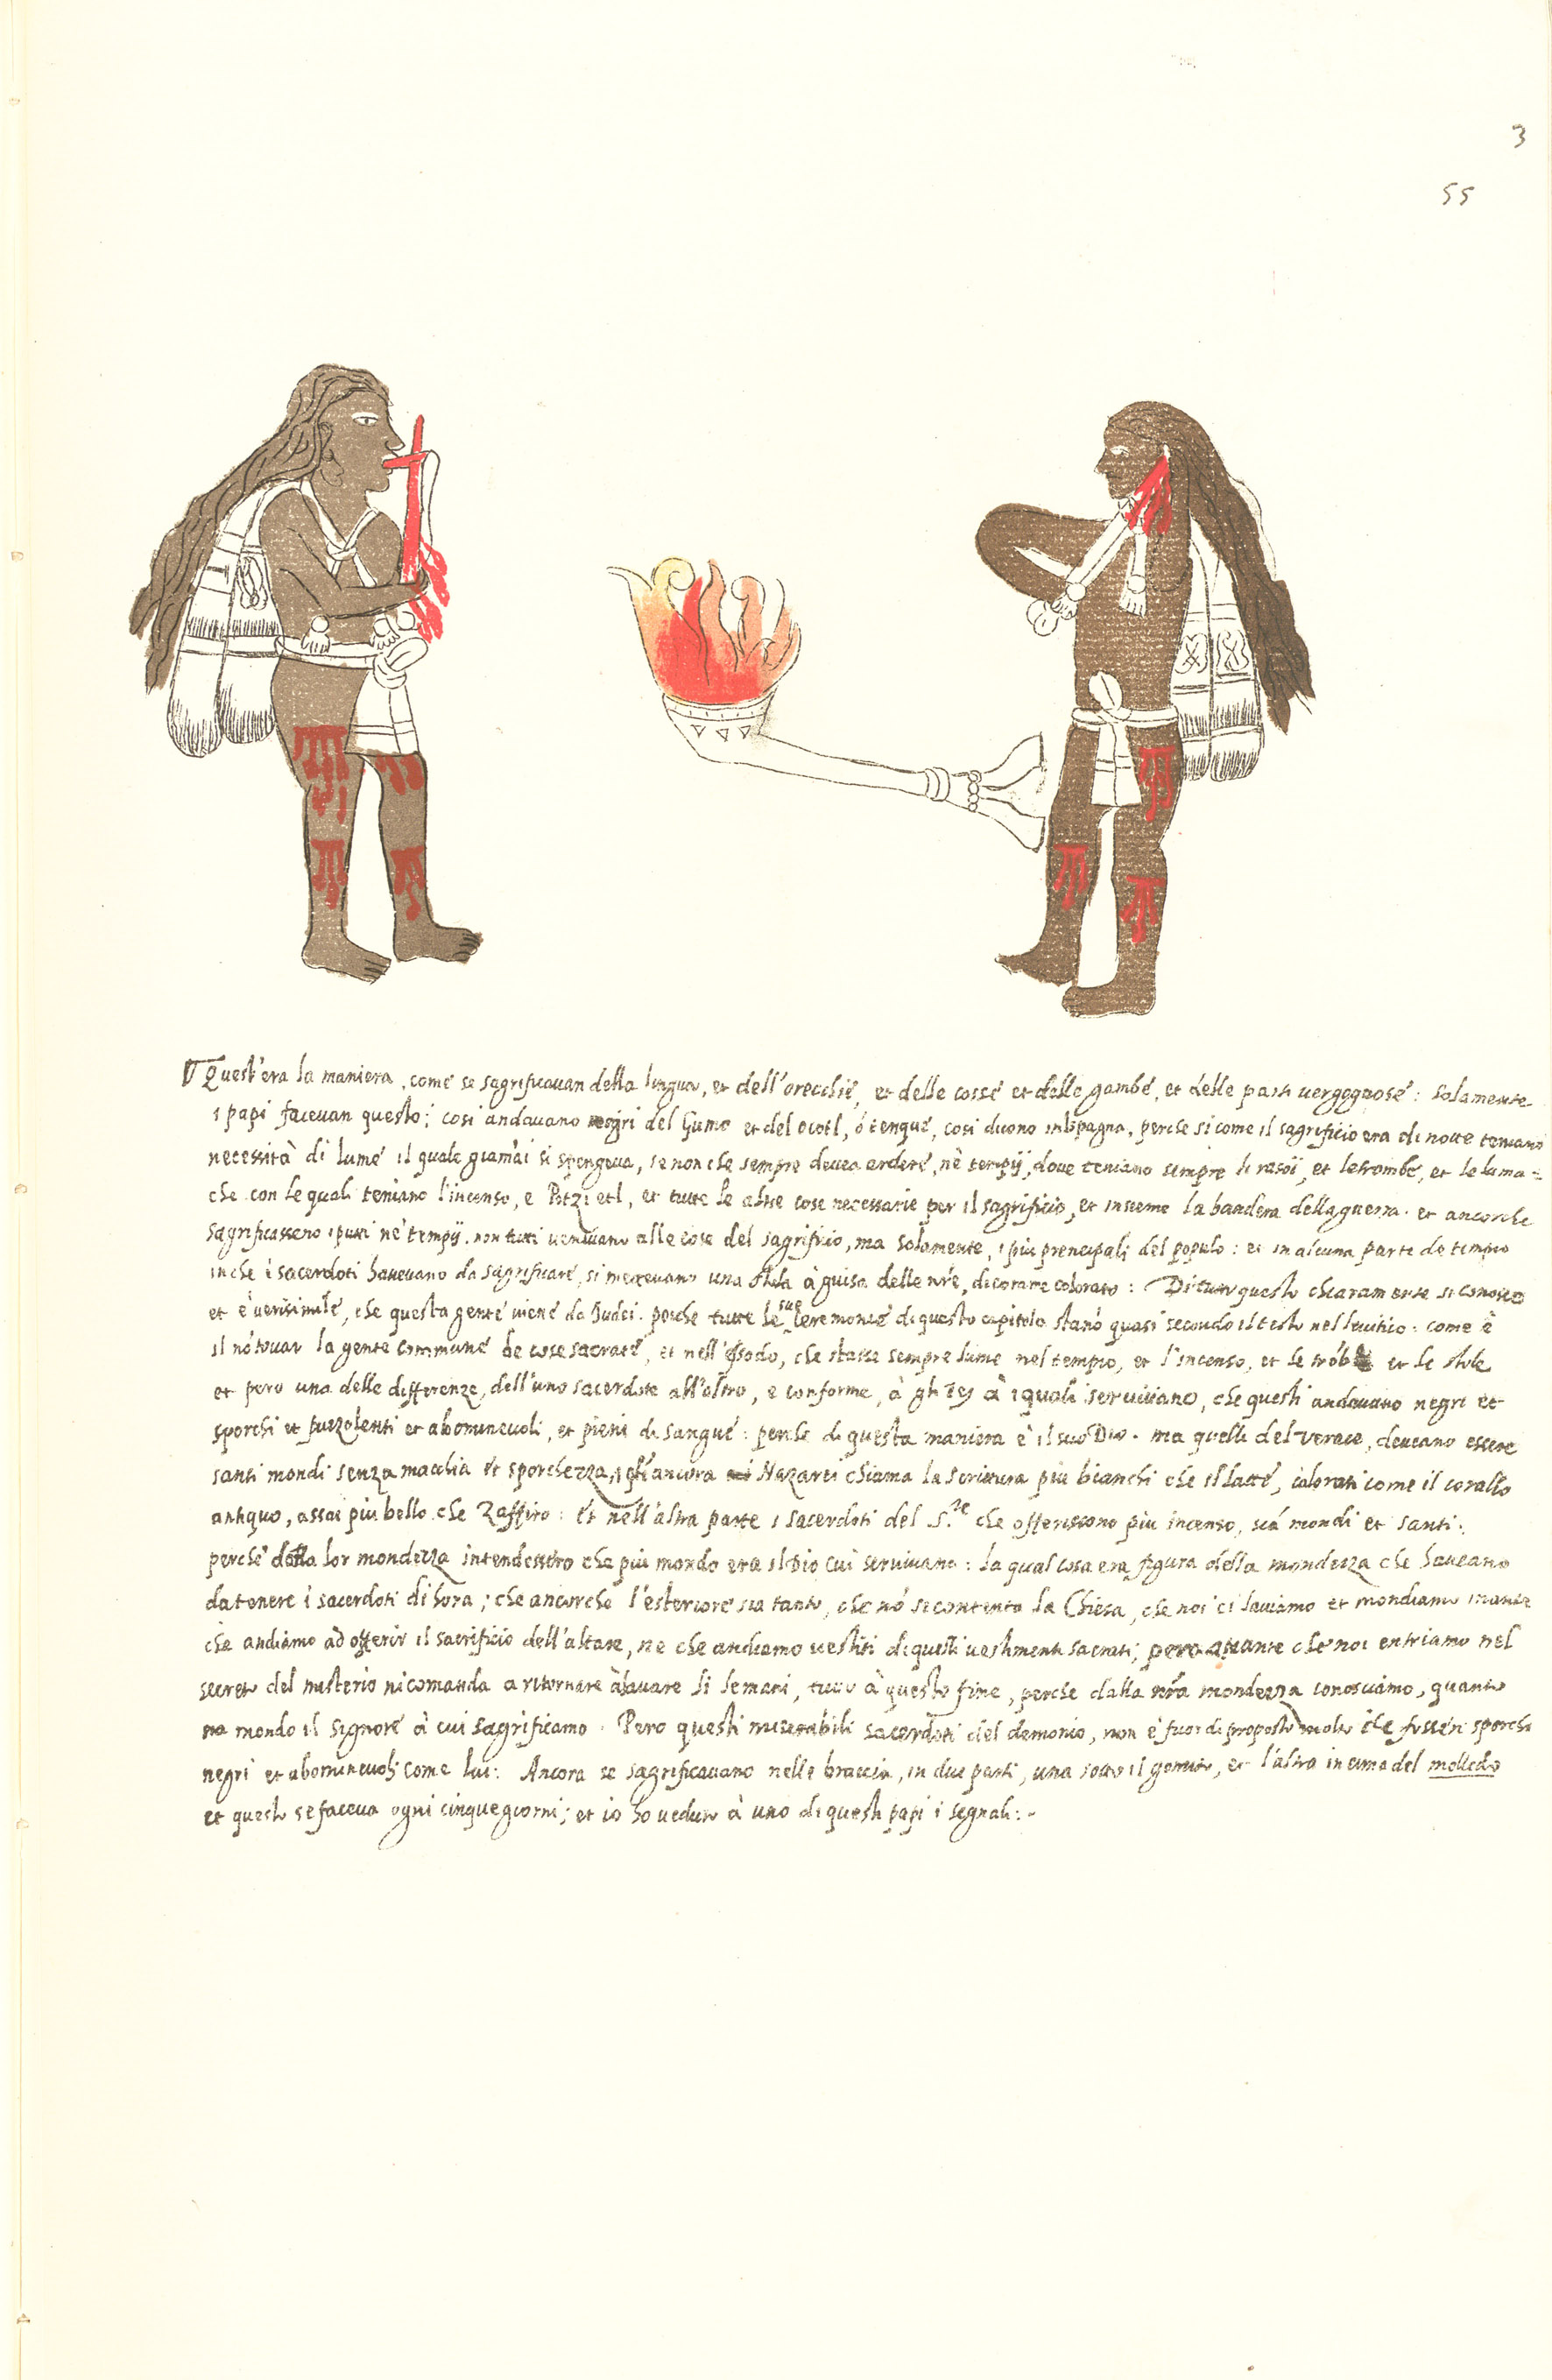 3
55
Quest'era la maniera, come se sagrificauan della lingua, et dell'orecchie, et delle cosse et delle gambe, et delle parti uergognose: solamente
i papi faceuan questo; cosi andauano negri del fumo et del ocotl, ó tenque, cosi dicono in Ispagna, perche si come il sagrificio era di notte teniano
necessità di lume il quale giamài si spengeua, se non che sempre deuea ardere, nè tempij, doue teniano sempre li rasoi, et le trombe, et le luma=
che con le quali teniano l'incenso, e Pitzietl, et tutte le altre cose necessarie per il sagrificio, et insieme la bandera della guerra. et ancorche
sagrificasseno i putti nè tempij. non tutti ueniuano alle cose del sagrificio, ma solamente, i più prencipali del populo: et in alcuna parte de tempio
in che i sacerdoti haueuano da sagrificare, si metteuano una stola à guisa delle nr̃e, di corame colorato: Di tutto questo chiaramente si conosce
et è uerisimile, che questa gente uiene da Iudei. perche tutte le sue ceremonie di questo capitolo stanò quasi secondo il testo nel leuitico: come è
il nò tocar la gente commune le cose sacrate, et nell'essodo, che stasse sempre lume nel tempio, et l'incenso, et le trõbe et le stole
et pero una delle differenze, dell'uno sacerdote all'altro, e conforme, à gli Dei à i quali seruiuano, che questi andauano negri et
sporchi et puzzolenti et abomineuoli, et pieni di sangue: perche di questa maniera è il suo Dio. ma quelli del uerace, deueano essere
santi mondi senza macchia et sporchezza, ancora Nazarei chiama la scrittura piu bianchi che il latte, colorati come il corallo
antiquo, assai piu bello che Zaffiro: et nell'altra parte i sacerdoti del S.re che offeriscono piu incenso, siã mondi et santi:
perche dalla lor mondezza intendessero che piu mondo era il Dio cui seruiuano: la qual cosa era figura della mondezza che haueano
da tenere i sacerdoti di hora; che ancorche l'esteriore sia tanto, che nó se contenta la Chiesa, che noi ci lauiamo et mondiamo inante
che andiamo ad offerir il sacrificio dell'altare, ne che andiamo uestiti di questi ueshmenti sacrati; pero auante che noi entriamo nel
secreto del misterio ni comanda a ritornare à lauare li le mani, tutto à questo fine, perche dalla nr̃a mondezza conosciamo, quanto
na mondo il Signore à cui sagrificamo. Pero questi miserabili sacerdoti del demonio, non è fuor di proposito molto che fussen sporchi
negri et abomineuoli come lui: Ancora se sagrificauano nelle braccia, in due parti, una sotto il gomito, et l'altra in cima del molledo
et questo se faceua ogni cinque giorni; et io ho ueduto à uno di questi papi i segnali:~